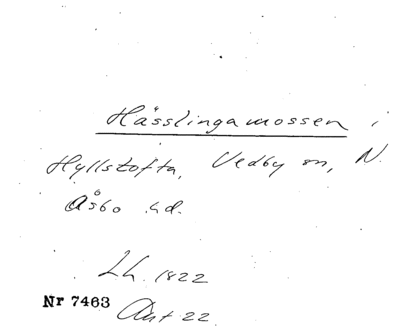 Hässlingamossen i
Hyllstofta, Vedby sn, N.
Åsbo hd.
Lh. 1822
Nr 7463
Ant 22